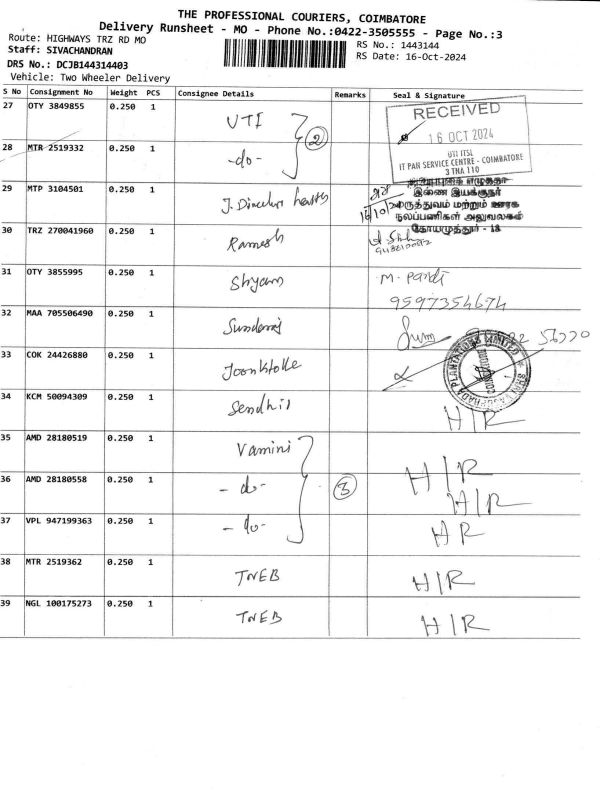 THE PROFESSIONAL COURIERS, COIMBATORE
Delivery Runsheet - MO - Phone No.:0422-3505555 - Page No.:3
Route: HIGHWAYS TRZ RD MO
RS No.: 1443144
Staff: SIVACHANDRAN
RS Date: 16-Oct-2024
DRS No.: DCJB144314403
Vehicle: Two Wheeler Delivery
S No Consignment No Weight PCS Consignee Details Remarks Seal & Signature
27 OTY 3849855 0.250 1 UTI
RECEIVED
16 OCT 2024
UTI ITSL
IT PAN SERVICE CENTRE - COIMBATORE
3 TNA 110
28 MTR 2519332 0.250 1 -do- 2
29 MTP 3104501 0.250 1 J. health 16/10/24
இணை இயக்குநர்
மருத்துவம் மற்றும் ஊரக
நலப்பணிகள் அலுவலகம்
கோயமுத்தூர் - 18
30 TRZ 270041960 0.250 1 Ramesh
31 OTY 3855995 0.250 1 Shyam M. Pandi
9597354674
32 MAA 705506490 0.250 1 Sunderraj
33 COK 24426880 0.250 1
PLANTATIONS LIMITED
34 KCM 50094309 0.250 1 Sendhil H/R
35 AMD 28180519 0.250 1 Vamini H/R
36 AMD 28180558 0.250 1 -do- 3 H/R
37 VPL 947199363 0.250 1 -do- HR
38 MTR 2519362 0.250 1 TNEB H/R
39 NGL 100175273 0.250 1 TNEB H/R